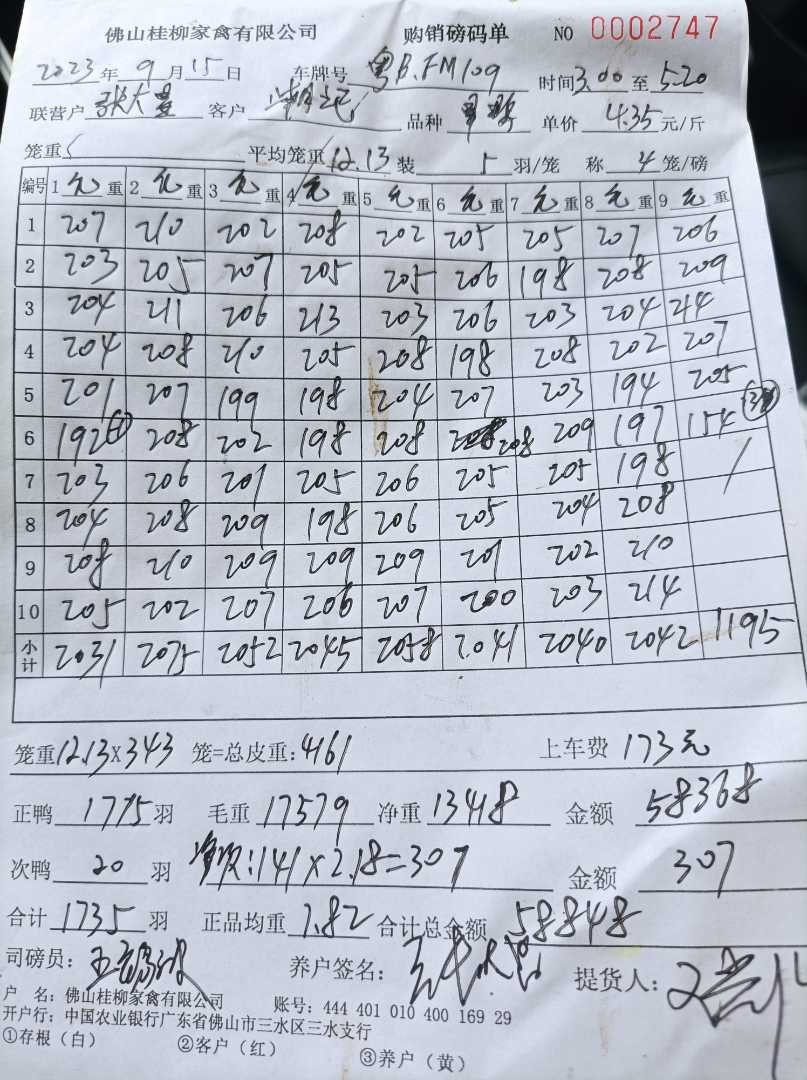 佛山桂柳家禽有限公司 购销磅码单 NO 0002747
2023年9月15日 车牌号 粤B.FM109 时间3.00至5.20
联营户 张大 客户 品种 单价 4.35元/斤
笼重 平均笼重12.13 装 5 羽/笼 称 4 笼/磅
编号 1 元 重 2 元 重 3 元 重 4 元 重 5 元 重 6 元 重 7 元 重 8 元 重 9 元 重
1 207 210 202 208 202 205 205 207 206
2 203 205 207 205 205 206 198 208 209
3 204 211 206 213 203 206 203 204 214
4 204 208 210 205 208 198 208 202 207
5 201 207 199 198 204 207 203 194 205
6 192 208 202 198 208 208 209 197 154
7 203 206 201 205 206 205 205 198
8 204 208 209 198 206 205 204 208
9 208 210 209 209 209 201 202 210
10 205 202 207 206 207 200 203 214
小计 2031 2075 2052 2045 2058 2041 2040 2042 1195
笼重12.13X343 笼=总皮重:4161 上车费 173元
正鸭 1715 羽 毛重 17579 净重 13418 金额 58368
次鸭 20 羽 净次:141X2.18=307 金额 307
合计 1735 羽 正品均重 7.82 合计总金额 58848
司磅员: 养户签名: 提货人:
户 名:佛山桂柳家禽有限公司 账号:444 401 010 400 169 29
开户行:中国农业银行广东省佛山市三水区三水支行
①存根(白) ②客户(红) ③养户(黄)